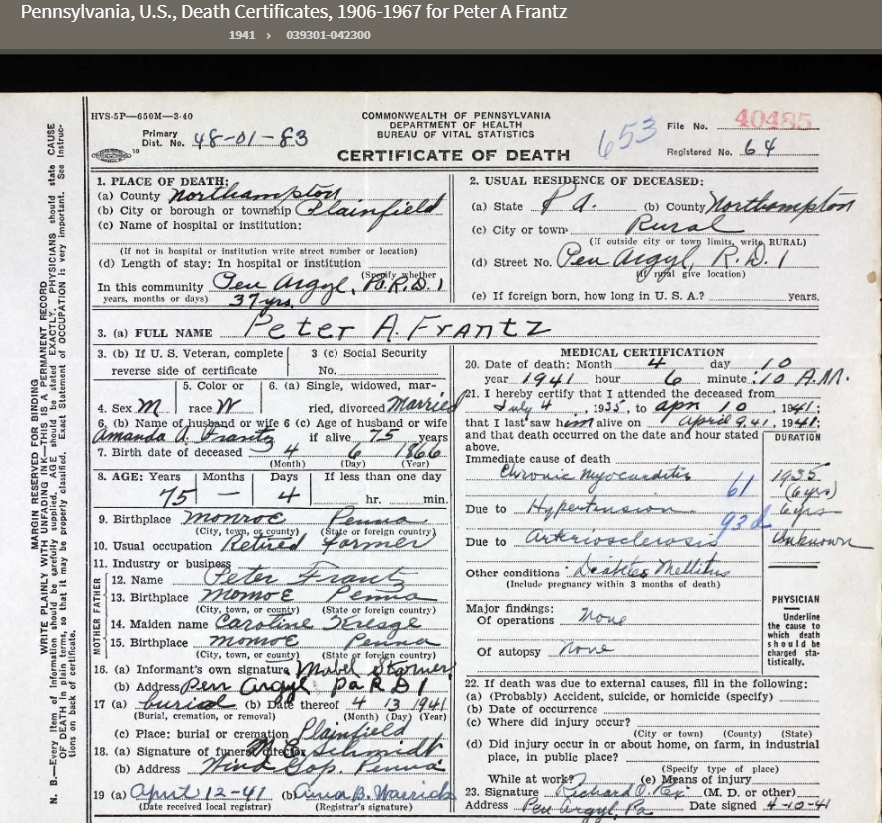 Pennsylvania, U.S., Death Certificates, 1906-1967 for Peter A Frantz
1941 › 039301-042300
HVS-5P—650M—3-40
Primary
Dist. No. 48-01-83
COMMONWEALTH OF PENNSYLVANIA
DEPARTMENT OF HEALTH
BUREAU OF VITAL STATISTICS
CERTIFICATE OF DEATH
653
File No. 40485
Registered No. 64
MARGIN RESERVED FOR BINDING
WRITE PLAINLY WITH UNFADING INK—THIS IS A PERMANENT RECORD
N. B.—Every item of information should be carefully supplied. AGE should be stated EXACTLY. PHYSICIANS should state CAUSE
OF DEATH in plain terms, so that it may be properly classified. Exact Statement of OCCUPATION is very important. See Instruc-
tions on back of certificate.
1. PLACE OF DEATH:
(a) County Northampton
(b) City or borough or township Plainfield
(c) Name of hospital or institution:
(If not in hospital or institution write street number or location)
(d) Length of stay: In hospital or institution
(Specify whether
In this community Pen Argyl, Pa. R.D. 1
years, months or days) 37 yrs.
2. USUAL RESIDENCE OF DECEASED:
(a) State Pa. (b) County Northampton
(c) City or town Rural
(If outside city or town limits, write RURAL)
(d) Street No. Pen Argyl R.D. 1
(If rural give location)
(e) If foreign born, how long in U. S. A.? years.
3. (a) FULL NAME Peter A. Frantz
3. (b) If U. S. Veteran, complete
reverse side of certificate
3 (c) Social Security
No.
4. Sex M
5. Color or
race W
6. (a) Single, widowed, mar-
ried, divorced Married
6. (b) Name of husband or wife 6 (c) Age of husband or wife
Amanda A. Frantz if alive 75 years
7. Birth date of deceased 4 6 1866
(Month) (Day) (Year)
8. AGE: Years Months Days If less than one day
75 — 4 hr. min.
9. Birthplace Monroe Penna
(City, town, or county) (State or foreign country)
10. Usual occupation Retired Farmer
11. Industry or business
FATHER
12. Name Peter Frantz
13. Birthplace Monroe Penna
(City, town, or county) (State or foreign country)
MOTHER
14. Maiden name Caroline Kresge
15. Birthplace Monroe Penna
(City, town, or county) (State or foreign country)
16. (a) Informant's own signature Mabel Starner
(b) Address Pen Argyl Pa R D 1
17 (a) burial (b) Date thereof 4 13 1941
(Burial, cremation, or removal) (Month) (Day) (Year)
(c) Place: burial or cremation Plainfield
18. (a) Signature of funeral director Schmidt
(b) Address Wind Gap. Penna
19 (a) April 12-41 (b) Anna B.
(Date received local registrar) (Registrar's signature)
MEDICAL CERTIFICATION
20. Date of death: Month 4 day 10
year 1941 hour 6 minute :10 A.M.
21. I hereby certify that I attended the deceased from
July 4, 1935, to Apr 10, 1941;
that I last saw him alive on April 9, 41, 1941;
and that death occurred on the date and hour stated
above.
DURATION
Immediate cause of death
Chronic Myocarditis 61 1935 (6 yrs)
Due to Hypertension 93d 6 yrs
Due to Arteriosclerosis Unknown
Other conditions Diabetes Mellitus
(Include pregnancy within 3 months of death)
Major findings:
Of operations None
Of autopsy None
PHYSICIAN
Underline
the cause to
which death
should be
charged sta-
tistically.
22. If death was due to external causes, fill in the following:
(a) (Probably) Accident, suicide, or homicide (specify)
(b) Date of occurrence
(c) Where did injury occur?
(City or town) (County) (State)
(d) Did injury occur in or about home, on farm, in industrial
place, in public place?
(Specify type of place)
While at work? (e) Means of injury
23. Signature Richard O. Rex (M. D. or other)
Address Pen Argyl, Pa Date signed 4-10-41